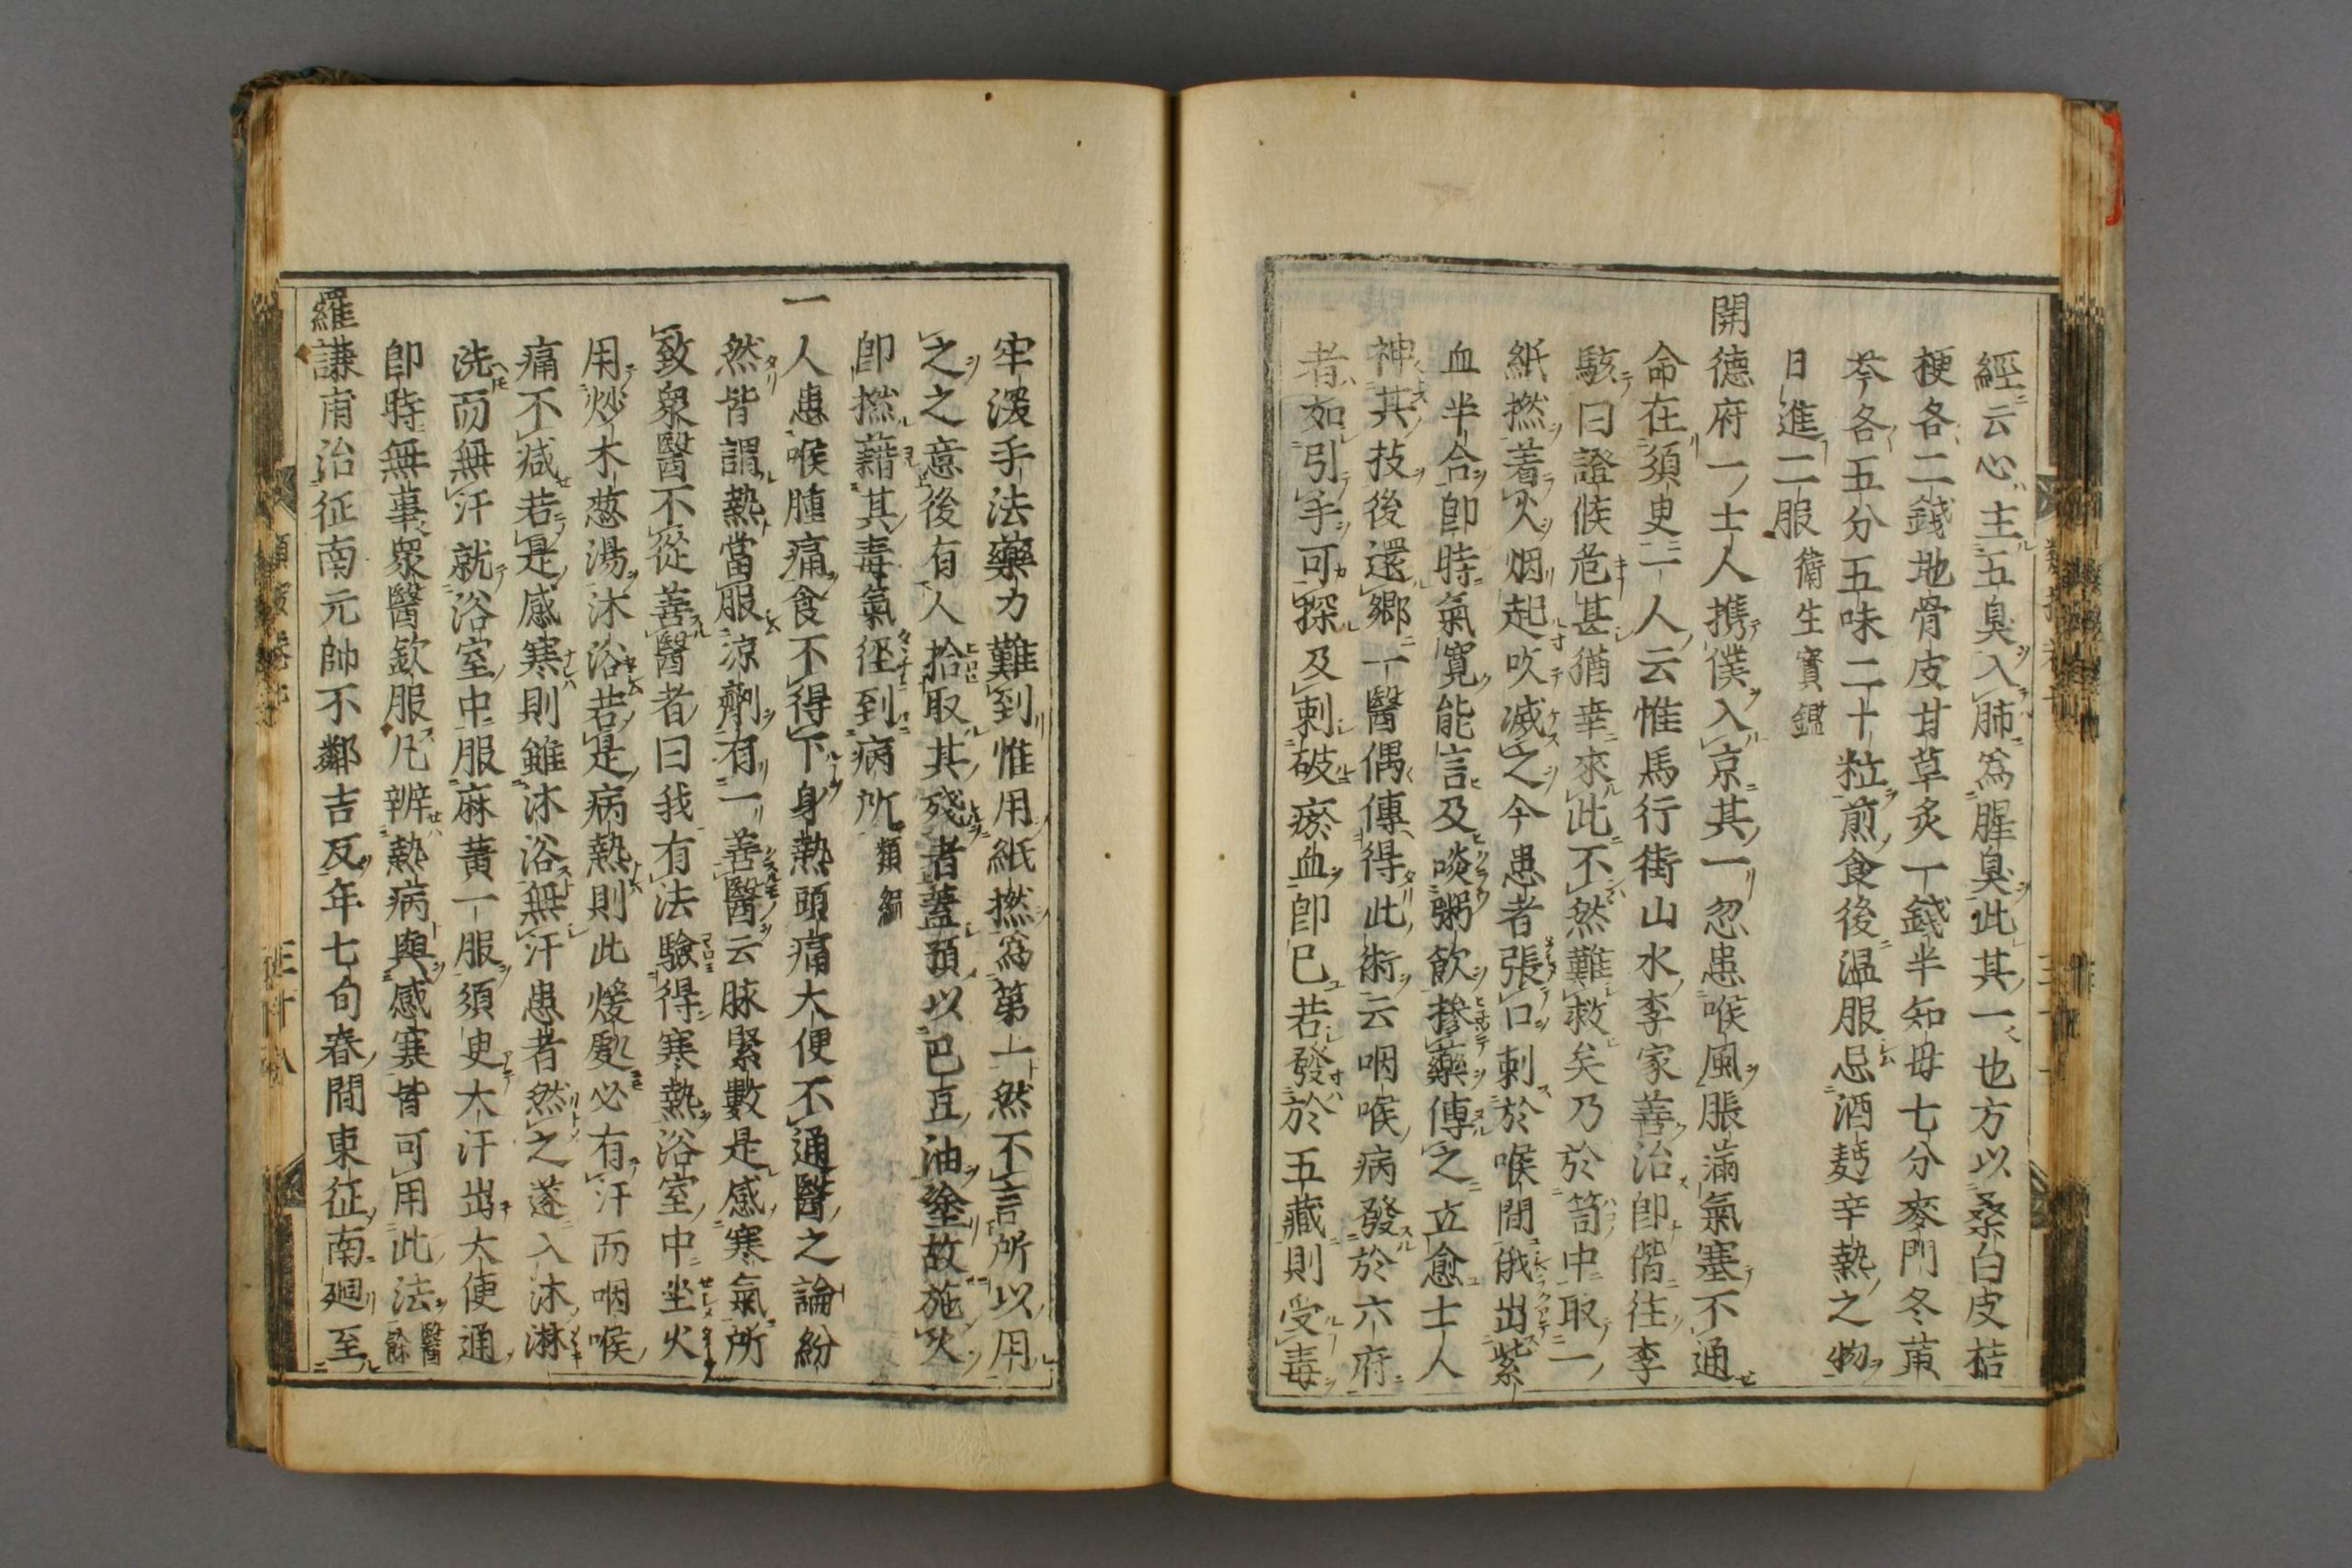 經云心主五臭入肺爲腥臭此其一也方以桑白皮桔
梗各二錢地骨皮甘草炙一錢半知母七分麥門冬黃
芩各五分五味二十粒煎食後温服忌酒麪辛熱之物
日進二服衛生寳鑑
開德府一士人携僕入京其一忽患喉風脹滿氣塞不通
命在須臾一人云惟馬行街山水李家善治即偕往李
駭曰證候危甚猶幸來此不然難救矣乃於笥中取一
紙撚着火烟起吹滅之令患者張口刺於喉間俄出紫
血半合即時氣寛能言及啖粥飲摻藥傳之立愈士人
神其技後還鄉一醫偶傳得此術云咽喉病發於六府
者如引手可探及刺破瘀血即已若發於五藏則受毒
牢澀手法藥力難到惟用紙撚爲第一然不言所以用
之之意後有人拾取其殘者蓋預以巴豆油塗故施火
即撚藉其毒氣徑到病所類編
一人患喉腫痛食不得下身熱頭痛大便不通醫之論紛
然皆謂熱當服涼劑有一善醫云脉緊數是感寒氣所
致衆醫不從善醫者曰我有法驗得寒熱浴室中坐火
用炒木葱湯沐浴若是病熱則此煖處必有汗而咽喉
痛不減若是感寒則雖沐浴無汗患者然之遂入沐淋
洗而無汗就浴室中服麻黃一服須臾大汗出大便通
即時無事衆醫歛服凡辨熱病與感寒皆可用此法醫餘
羅謙甫治征南元帥不鄰吉歹年七旬春間東征南廻至